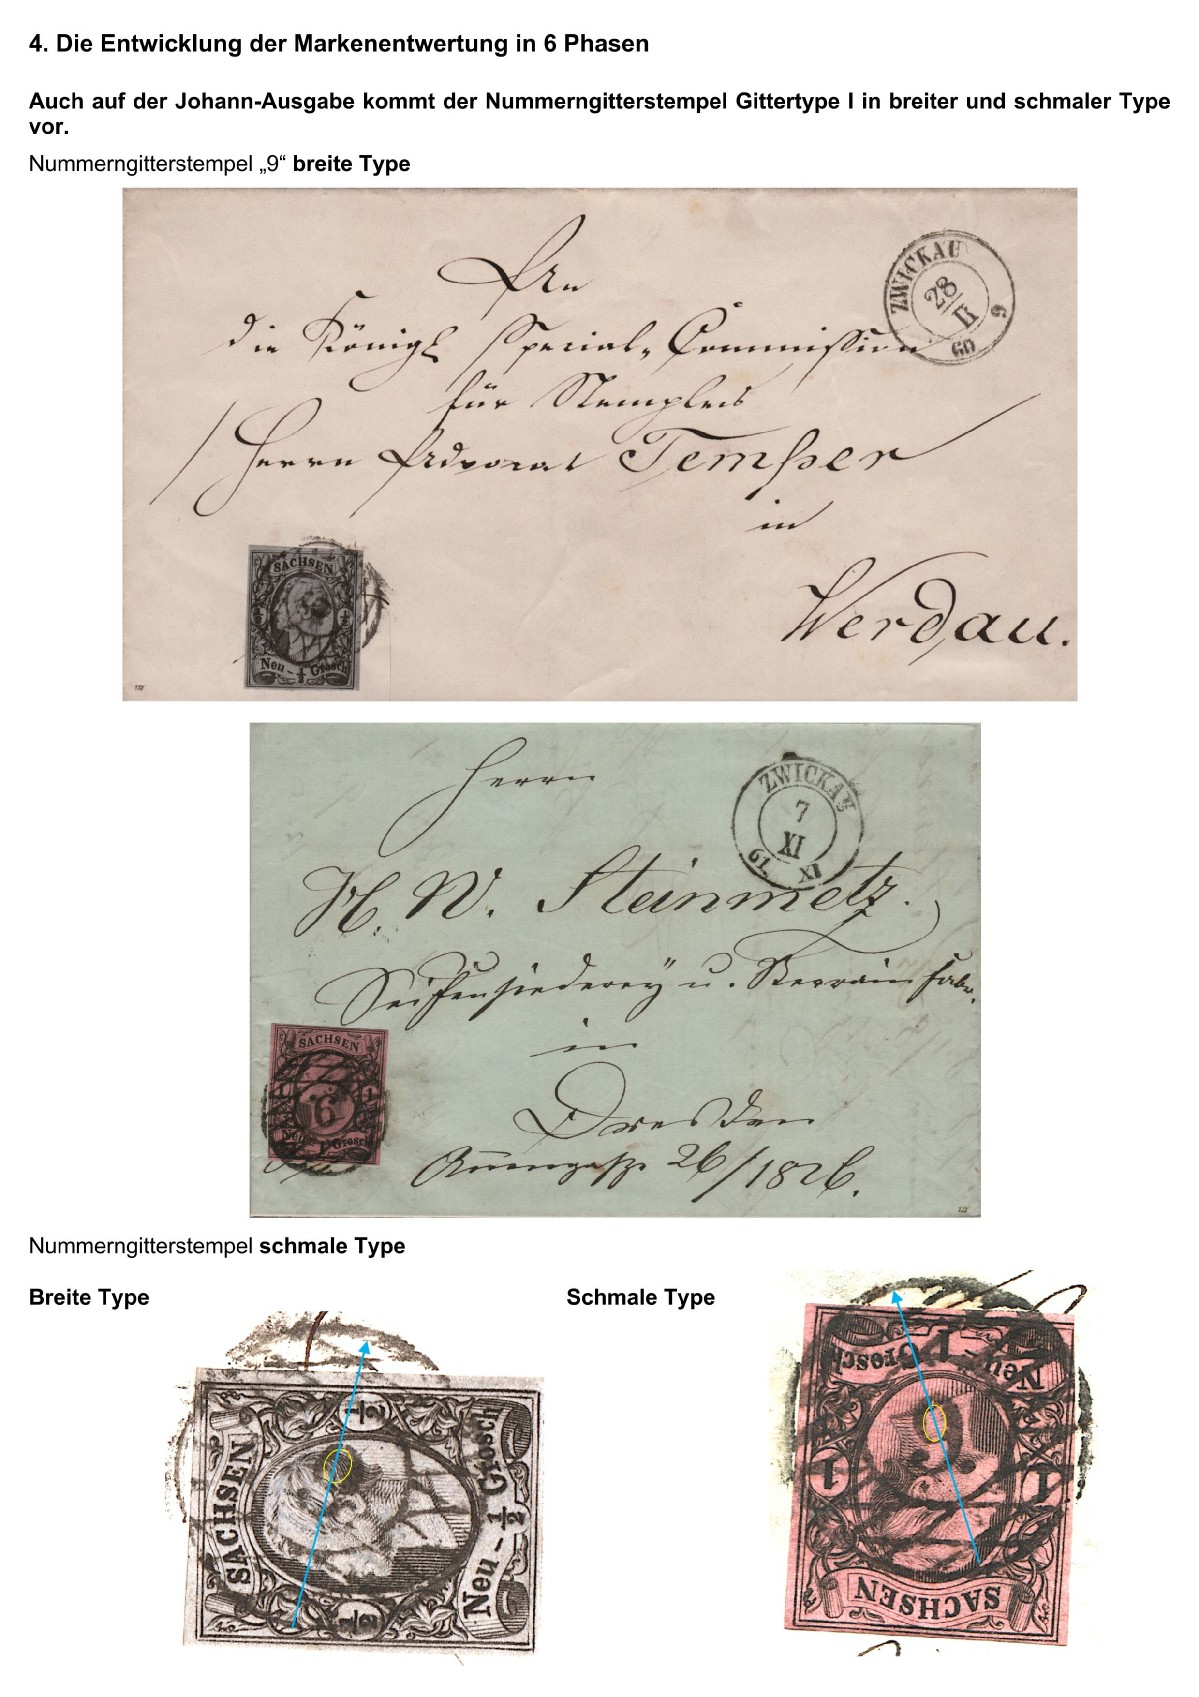 4. Die Entwicklung der Markenentwertung in 6 Phasen
Auch auf der Johann-Ausgabe kommt der Nummerngitterstempel Gittertype I in breiter und schmaler Type
vor.
Nummerngitterstempel „9“ breite Type
An
die Königl Special-Commission
für
Herrn Advocat Temper
in
Werdau.
ZWICKAU
28
II
60
6
SACHSEN
½ ½
Neu - ½ Grosch
Herrn
H. W. Steinmetz.
Seifensiederey u.
in
Dresden
26/1826.
ZWICKAU
7
XI
61. XI
SACHSEN
1 1
9
Neu - 1 Grosch
Nummerngitterstempel schmale Type
Breite Type
Schmale Type
SACHSEN
½ ½
Neu - ½ Grosch
SACHSEN
1 1
Neu - 1 Grosch